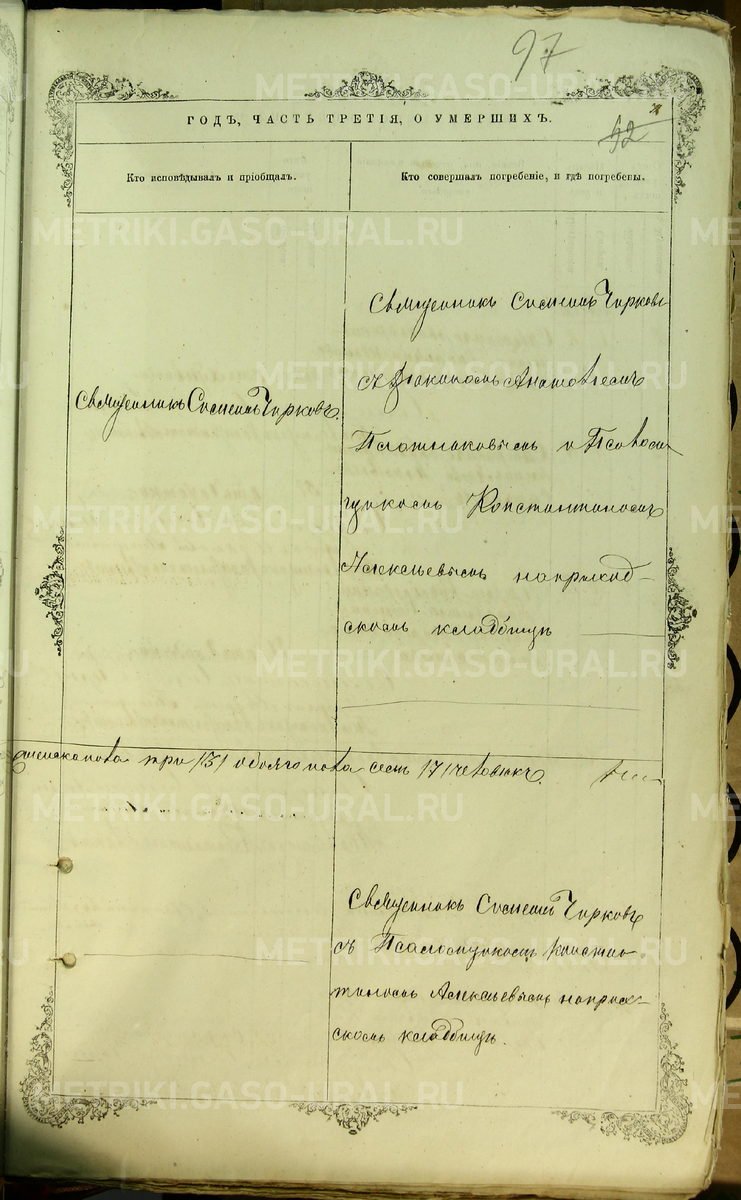 97
42
ГОДЪ, ЧАСТЬ ТРЕТІЯ, О УМЕРШИХЪ.
Кто исповѣдывалъ и пріобщалъ.
Кто совершалъ погребеніе, и гдѣ погребены.
Священникъ Симеонъ Чирковъ.
Священникъ Симеонъ Чирковъ
съ Діакономъ
Плотниковымъ и Псаломщ
щикомъ Константиномъ
Алексѣевымъ на приход-
скомъ кладбищѣ
три /3/ обоего пола семь /7/ человѣкъ.
Священникъ Симеонъ Чирковъ
съ Псаломщикомъ Констан-
тиномъ Алексѣевымъ на прих-
скомъ кладбищѣ.
METRIKI.GASO-URAL.RU